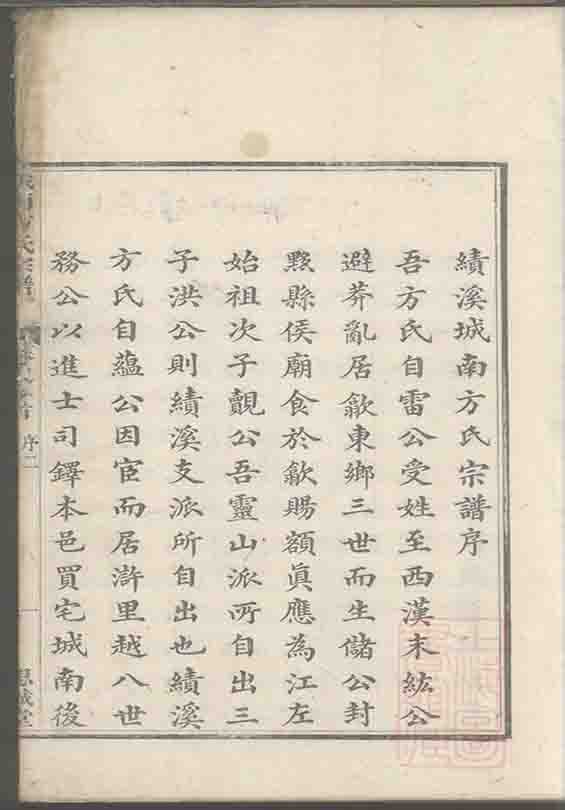 績溪城南方氏宗譜序
吾方氏自雷公受姓至西漢末紘公
避莽亂居歙東鄉三世而生儲公封
黟縣侯廟食於歙賜額真應為江左
始祖次子覿公吾靈山派所自出三
子洪公則績溪支派所自出也績溪
方氏自蘊公因宦而居滸里越八世
務公以進士司鐸本邑買宅城南後
城南方氏宗譜
卷之首 序二
一
思誠堂